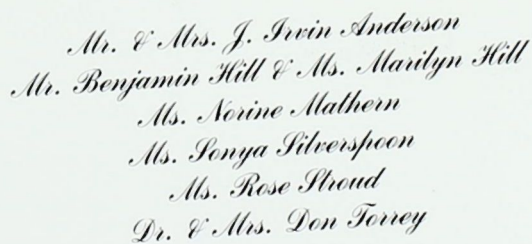 Mr. & Mrs. J. Irvin Anderson
Mr. Benjamin Hill & Ms. Marilyn Hill
Ms. Norine Mathern
Ms. Sonya Silverspoon
Ms. Rose Stroud
Dr. & Mrs. Don Torrey